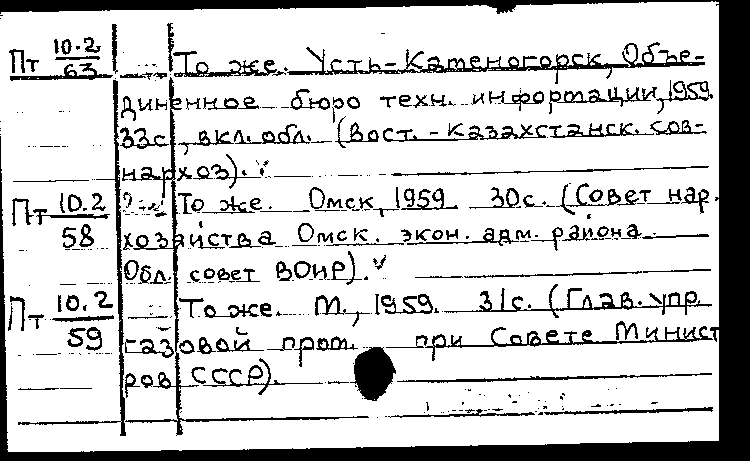 Пт 10.2/63 То же. Усть-Каменогорск, Объе-
диненное бюро техн. информации, 1959.
33с., вкл. обл. (Вост.-Казахстанск. сов-
нархоз).
Пт 10.2/58 То же. Омск, 1959. 30с. (Совет нар.
хозяйства Омск. экон. адм. района.
Обл. совет ВОИР).
Пт 10.2/59 То же. М., 1959. 31с. (Глав. упр
газовой пром. при Совете Минист
ров СССР).